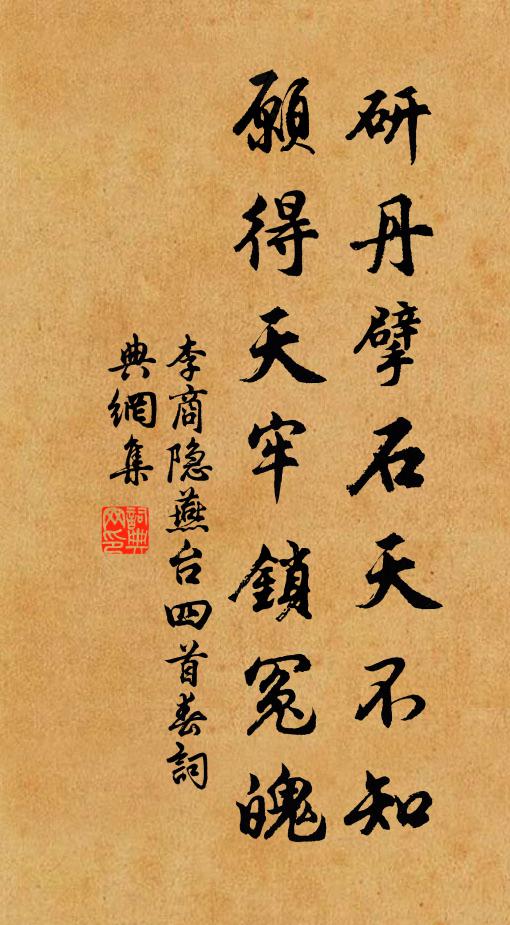 研丹擘石天不知
願得天牢鎖冤魄
李商隐燕台四首春詞
典網集
詞典网印